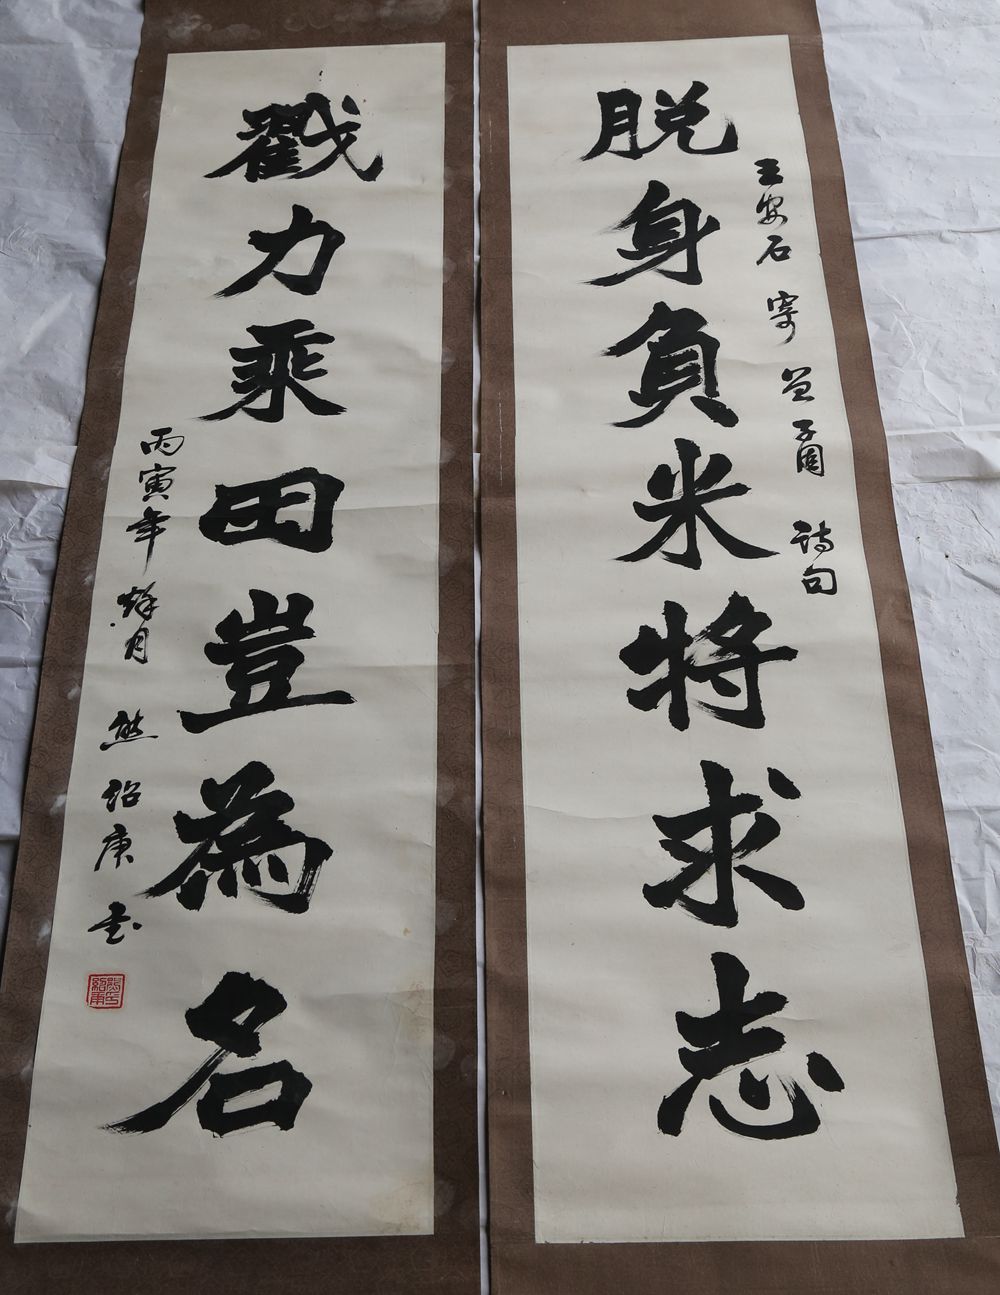 王安石 寄曾子固 诗句
脱身負米将求志
戳力乘田豈為名
丙寅年 月 熊绍庚书